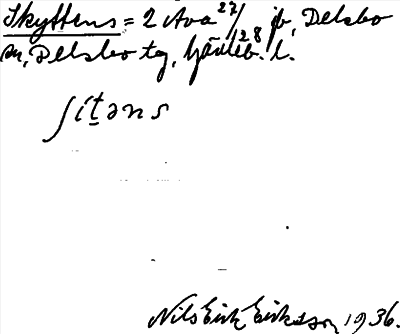 Skyttens = 2 Ava 27/28 jb, Delsbo
sn, Delsbo tg, Gävleb. l.
ʃít̲əns
Nils Eirik Eiriksson 1936.